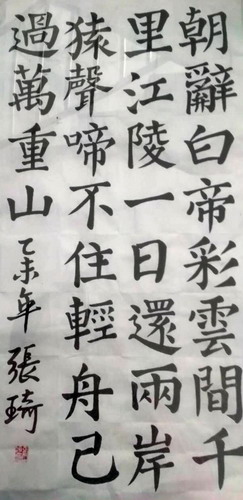 朝辭白帝彩雲間千
里江陵一日還兩岸
猿聲啼不住輕舟已
過萬重山
乙未年 張琦